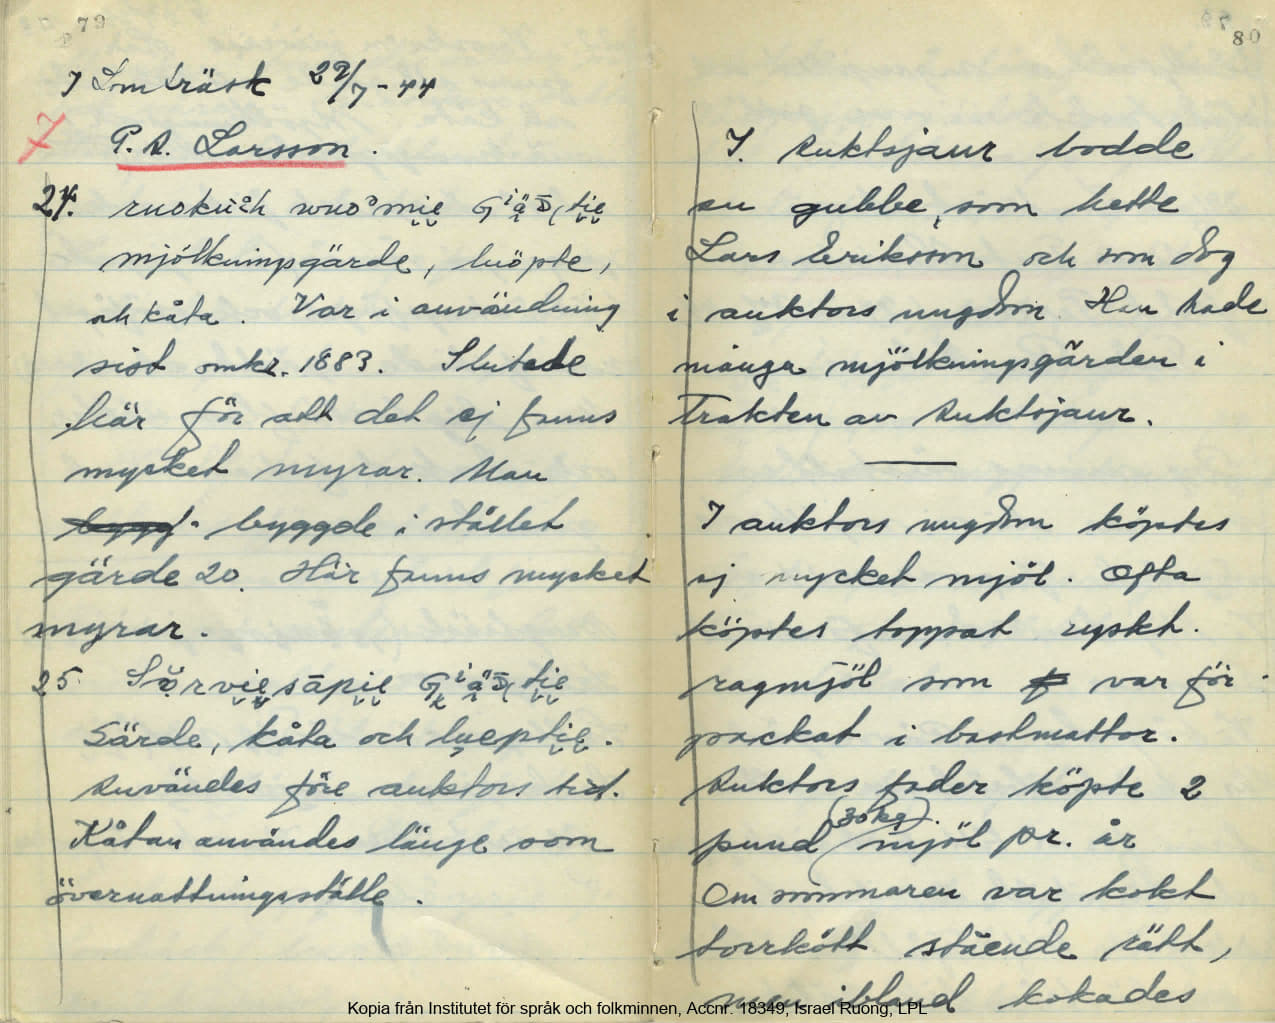 79
I Lomträsk 29/7-44
7
P.A. Larsson.
24.
mjölkningsgärde, luöpte,
och kåta. Var i användning
sist omkr. 1883. Slutade
här för att det ej fanns
mycket myrar. Man
byggde i stället
gärde 20. Här fanns mycket
myrar.
25.
Gärde, kåta och lueptie.
Användes före auktors tid.
Kåtan användes länge som
övernattningsställe.
80
I. Auktsjaur bodde
en gubbe, som hette
Lars Eriksson och som dog
i auktors ungdom. Han hade
många mjölkningsgärden i
trakten av Auktsjaur.
I auktors ungdom köptes
ej mycket mjöl. Ofta
köptes toppat ryskt.
ragmjöl som var för-
packat i bastmattor.
Auktors fader köpte 2
pund (30 kg). mjöl pr. år
Om sommaren var kokt
torrkött stående rätt,
men ibland kokades
Kopia från Institutet för språk och folkminnen, Accnr. 18349, Israel Ruong, LPL